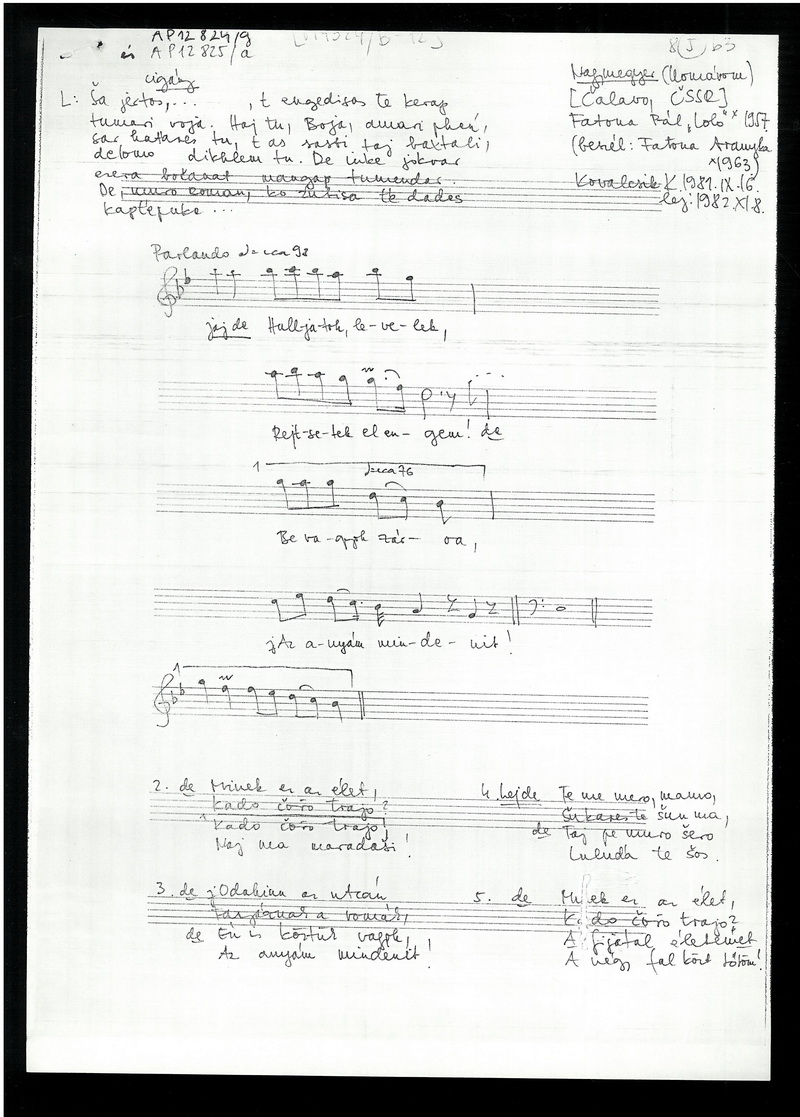 AP12824/g
és AP12825/a
8(J) b3
cigány
Nagymegyer (Komárom)
[Čalavo, ČSSR]
L: Ša jertos,... , t engedisos te kerap
tumari voja. Haj tu, Boja, amari pheń,
Fatona Pál „Loló" * 1957
sar kattares tu, t as sasti taj baxtali,
(beszél: Fatona Aranyka
*1963)
delomo dikhlem tu. De inke jokvar
ezera bočánat mangap tumendar.
Kovalcsik K. 1981.IX.16.
De, muro roman, ko žutisa te dades
lej: 1982.XI.8.
kaptepuke ...
Parlando ♩= ca 98
jaj de Hallja-tok, le-ve-lek,
Rejt-se-tek el en- gem! de
1 ♩=ca 76
Be va-gyok zár- va,
jAz a-nyám min-de-nit!
1
2. de Minek ez az élet,
kado čořo trajo?
Kado čořo trajo,
Naj ma maradási!
4. hejde Te me mero, mamo,
Šukares te šun ma,
de Taj pe muro šero
Luluďa te šos.
3. de jOdabinn az utcán
a romás,
de Én is körtül vagyok,
Az anyám mindenit!
5. de Minek ez az élet,
Kado čořo trajo?
A fijatal életemet
A négy fal közt töltöm!